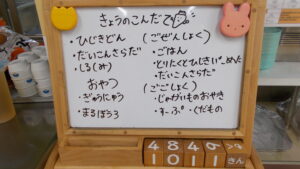 きょうのこんだて
・ひじきどん
・だいこんさらだ
・しる(み)
おやつ
・ぎゅうにゅう
・まるぼうろ
(ごぜんしょく)
・ごはん
・だいこんさらだ
(ごごしょく)
・じゃがいものおやき
・すーぷ・くだもの
4 8 4 6
1 0 1 1 さん